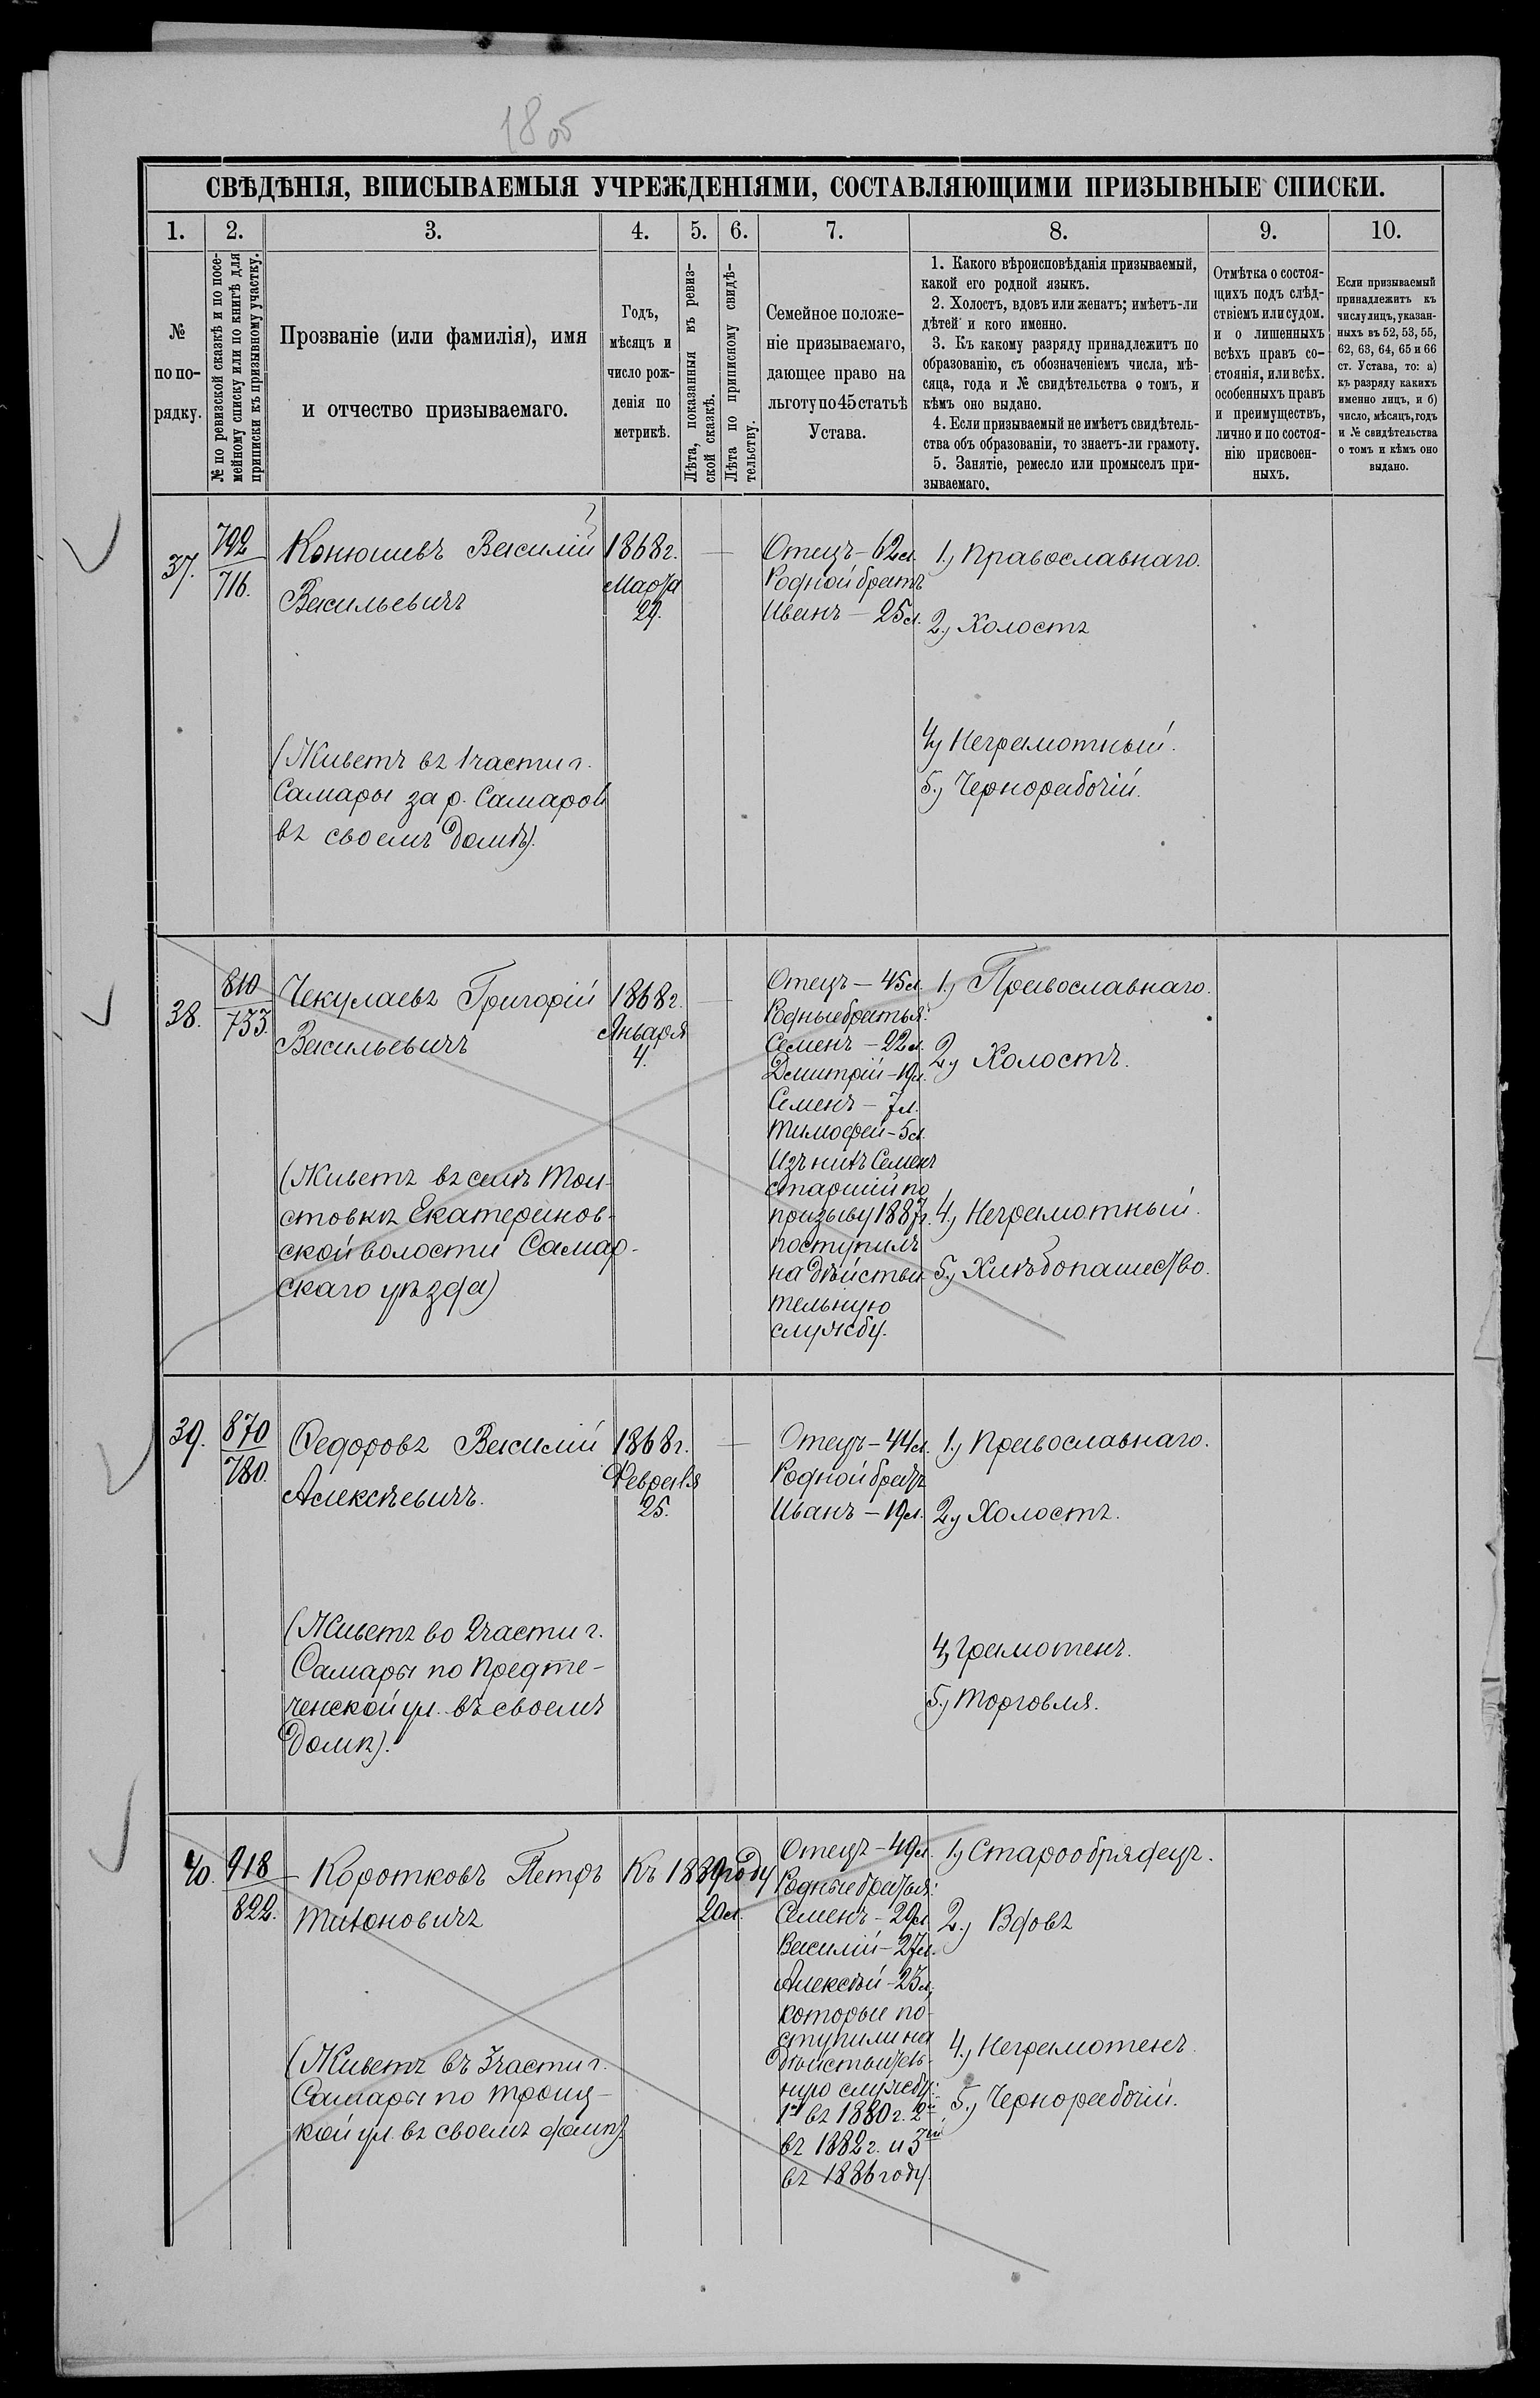 1805
СВѢДѢНІЯ, ВПИСЫВАЕМЫЯ УЧРЕЖДЕНІЯМИ, СОСТАВЛЯЮЩИМИ ПРИЗЫВНЫЕ СПИСКИ.
1. 2. 3. 4. 5. 6. 7. 8. 9. 10.
№
по по-
рядку.
№ по ревизской сказкѣ и по посе-
мейному списку или по книгѣ для
приписки къ призывному участку.
Прозваніе (или фамилія), имя
и отчество призываемаго.
Годъ,
мѣсяцъ и
число рож-
денія по
метрикѣ.
Лѣта, показанныя въ ревиз-
ской сказкѣ.
Лѣта по приписному свидѣ-
тельству.
Семейное положе-
ніе призываемаго,
дающее право на
льготу по 45 статьѣ
Устава.
1. Какого вѣроисповѣданія призываемый,
какой его родной языкъ.
2. Холостъ, вдовъ или женатъ; имѣетъ-ли
дѣтей и кого именно.
3. Къ какому разряду принадлежитъ по
образованію, съ обозначеніемъ числа, мѣ-
сяца, года и № свидѣтельства о томъ, и
кѣмъ оно выдано.
4. Если призываемый не имѣетъ свидѣтель-
ства объ образованіи, то знаетъ-ли грамоту.
5. Занятіе, ремесло или промыселъ при-
зываемаго.
Отмѣтка о состоя-
щихъ подъ слѣд-
ствіемъ или судом.
и о лишенныхъ
всѣхъ правъ со-
стоянія, или всѣх.
особенныхъ правъ
и преимуществъ,
лично и по состоя-
нію присвоен-
ныхъ.
Если призываемый
принадлежитъ къ
числу лицъ, указан-
ныхъ въ 52, 53, 55,
62, 63, 64, 65 и 66
ст. Устава, то: а)
къ разряду какихъ
именно лицъ, и б)
число, мѣсяцъ, годъ
и № свидѣтельства
о томъ и кѣмъ оно
выдано.
37.
792
716.
Конюшевъ Василій
Васильевичъ
(Живетъ въ 1 части г.
Самары за р. Самарой
въ своемъ домѣ).
1868 г.
Марта
29.
Отецъ – 62 л.
Родной братъ
Иванъ – 25 л.
1.) Православнаго.
2.) Холостъ
4.) Неграмотный.
5.) Чернорабочій.
38.
810
733.
Чекулаевъ Григорій
Васильевичъ
(Живетъ въ селѣ Тол-
стовкѣ Екатеринов-
ской волости Самар-
скаго уѣзда)
1868 г.
Января
4.
Отецъ – 45 л.
Родные братья:
Семенъ – 22 л.
Дмитрій – 19 л.
Семенъ – 7 л.
Тимофей – 5 л.
Изъ нихъ Семенъ
старшій по
призыву 1887 г.
поступилъ
на дѣйстви-
тельную
службу.
1.) Православнаго.
2.) Холостъ.
4.) Неграмотный.
5.) Хлѣбопашество.
39.
870
780.
Федоровъ Василій
Алексѣевичъ.
(Живетъ во 2 части г.
Самары по Предте-
ченской ул. въ своемъ
домѣ).
1868 г.
Февраля
25.
Отецъ – 44 л.
Родной братъ
Иванъ – 19 л.
1.) Православнаго.
2.) Холостъ.
4.) Грамотенъ.
5.) Торговля.
40.
918
822.
Коротковъ Петръ
Тихоновичъ
(Живетъ въ 3 части г.
Самары по Троиц-
кой ул. въ своемъ домѣ)
Къ 1889 году
20 л.
Отецъ – 49 л.
Родные братья:
Семенъ – 29 л.
Василій – 27 л.
Алексѣй – 23 л.,
которые по-
ступили на
дѣйствитель-
ную службу:
1й въ 1880 г. 2й
въ 1882 г. и 3й
въ 1886 году.
1.) Старообрядецъ.
2.) Вдовъ
4.) Неграмотенъ.
5.) Чернорабочій.